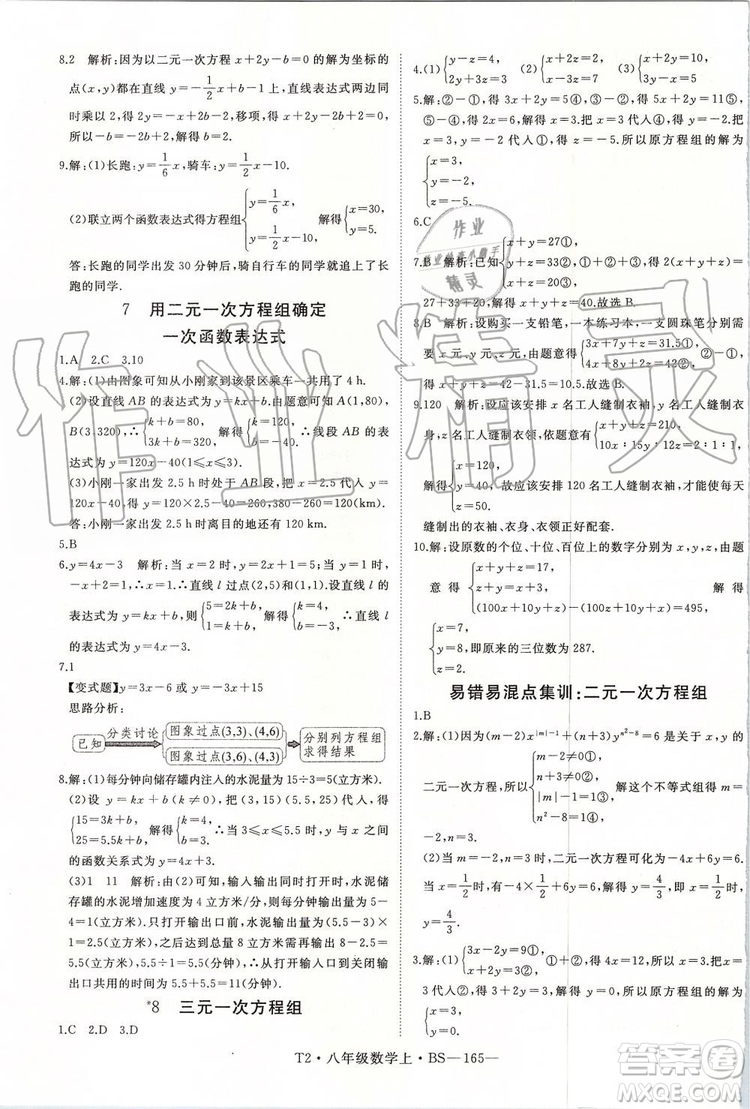 8.2 解析:因为以二元一次方程 x+2y-b=0 的解为坐标的
点(x,y)都在直线 y=-1/2x+b-1 上,直线表达式两边同
时乘以 2,得 2y=-x+2b-2,移项,得 x+2y-2b+2=0,
所以-b=-2b+2,解得 b=2.
9.解:(1)长跑:y=1/6x,骑车:y=1/2x-10.
(2)联立两个函数表达式得方程组{y=1/6x, y=1/2x-10. 解得{x=30, y=5.
答:长跑的同学出发 30 分钟后,骑自行车的同学就追上了长
跑的同学.
7 用二元一次方程组确定
一次函数表达式
1.A 2.C 3.10
4.解:(1)由图象可知从小刚家到该景区乘车一共用了 4 h.
(2)设直线 AB 的表达式为 y=kx+b,图象可得 A(1,80),
B(3,320),∴{k+b=80, 3k+b=320, 解得{k=120, b=-40. ∴线段 AB 的表
达式为 y=120x-40(1≤x≤3).
(3)小刚一家出发 2.5 h 时处于 AB 段,把 x=2.5 代入,得
y=120×2.5-40=260,380-260=120(km).
答:小刚一家出发 2.5 h 时离目的地还有 120 km.
5.B
6.y=4x-3 解析:当 x=2 时,y=2x+1=5;当 y=1 时,
-x+2=1,解得 x=1,则点(2,5),(1,1)在直线 l 上.设直线 l 的
表达式为 y=kx+b,则{5=2k+b, 1=k+b, 解得{k=4, b=-3. ∴直线 l
的表达式为 y=4x-3.
7.1
【变式题】y=3x-6 或 y=-3x+15
思路分析:
已知 分类讨论 图象过点(3,3),(4,6) 图象过点(3,6),(4,3) 分别列方程组求得结果
8.解:(1)每分钟向储存罐内注入的水泥量为 15÷3=5(立方米).
(2)设 y=kx+b(k≠0),把(3,15)(5.5,25)代入,得
{15=3k+b, 25=5.5k+b, 解得{k=4, b=3. ∴当 3≤x≤5.5 时,y 与 x 之间
的函数关系式为 y=4x+3.
(3)1 11 解析:由(2)可知,输入输出同时打开时,水泥储
存罐的水泥增加速度为 4 立方米/分,则输出速度为 5-
4=1(立方米/分).只打开输出口前,水泥输出量为(5.5-3)×
1=2.5(立方米),之后达到总量 8 立方米需输出 8-2.5=
5.5(立方米),用时 5.5÷1=5.5(分钟),∴从打开输入口到关闭输
出口共用的时间为 5.5+5.5=11(分钟).
*8 三元一次方程组
1.C 2.D 3.D
4.(1){y-z=4, 2y+3z=5 (2){x+2z=2, x+z=5 (3){x+2y=10, 3x+y=15
5.解:②-①,得 3x+2y=5④,③-①,得 8x+2y=20⑤,
⑤-④,得 5x=15,解得 x=3.把 x=3 代入④,得 y=-2.把
x=3,y=-2 代入①,得 z=-5.所以原方程组的解为
{x=3, y=-2, z=-5.
6.C
7.B 解析:已知{x+y=27①, y+z=33②, x+z=20③,
27+33+20,解得 x+y+z=40.故选 B.
8.B 解析:设购买一支铅笔,一本练习本,一支圆珠笔分别需
要 x 元、y 元、z 元,由题意得{3x+7y+z=31.5①, 4x+10y+z=42②,
得 x+3y=42-31.5=10.5.故选 B.
9.120 解析:设应该安排 x 名工人缝制衣袖,y 名工人缝制衣
身,z 名工人缝制衣领,依题意有{x+y+z=210, 10x:15y:12z=2:1:1,
解得{x=120, y=40, z=50. 故应该安排 120 名工人缝制衣袖,才能使每天
缝制出的衣袖、衣身、衣领正好配套.
10.解:设原数的个位、十位、百位上的数字分别为 x,y,z,由题
意得{x+y=z+13, x+z=y+1, (100x+10y+z)-(100z+10y+x)=495, 解得
{x=7, y=8, z=2. 即原来的三位数为 287.
易错易混点集训:二元一次方程组
1.B
2.解:(1)因为(m-2)x^|m|-1+(n+3)y^n²-8=6是关于 x,y的
二元一次方程,所以{m-2≠0, n+3≠0, |m|-1=1, n²-8=1. 解这个不等式组,得 m=
-2,n=3.
(2)当 m=-2,n=3时,二元一次方程可化为-4x+6y=6.
当 x=1/2 时,有-4×1/2+6y=6,解得 y=4/3,即 x=1/2 时,
y=4/3.
3.解:(1){3x-2y=9①, x-y=7②,
T2·八年级数学上·BS—165—